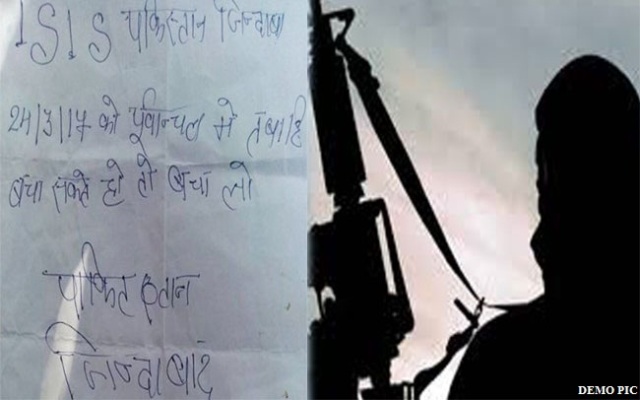 ISIS पाकिस्तान जिन्दाबा
24/3/17 को पूर्वान्चल मे तबाहि
बचा सकते हो तो बचा लो
पाकिस्तान
जिन्दाबाद
DEMO PIC